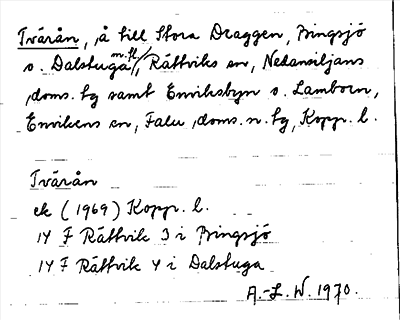 Tvärån, å till Stora Draggen, Bingsjö
o. Dalstuga m.fl., Rättviks sn, Nedansiljans
doms. hg samt Enviksbyn o. Lamborn,
Envikens sn, Falu doms. n. hg, Kopp. l.
Tvärån
ek (1969) Kopp. l.
14 F Rättvik 3 i Bingsjö
14 F Rättvik 4 i Dalstuga
A.-L. W. 1970.